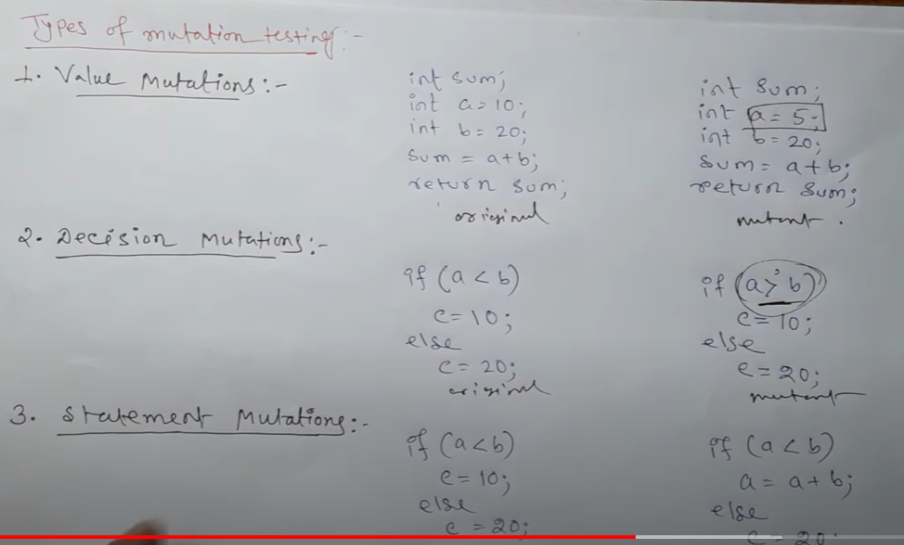 Types of mutation testing:-
1. Value Mutations:-
int sum;
int a=10;
int b=20;
sum = a+b;
return sum;
original
int sum;
int a=5;
int b=20;
sum = a+b;
return sum;
mutant.
2. Decision Mutations:-
if (a<b)
c=10;
else
c=20;
original
if (a>b)
c=10;
else
c=20;
mutant
3. Statement Mutations:-
if (a<b)
c=10;
else
c=20;
if (a<b)
a=a+b;
else
c=20;